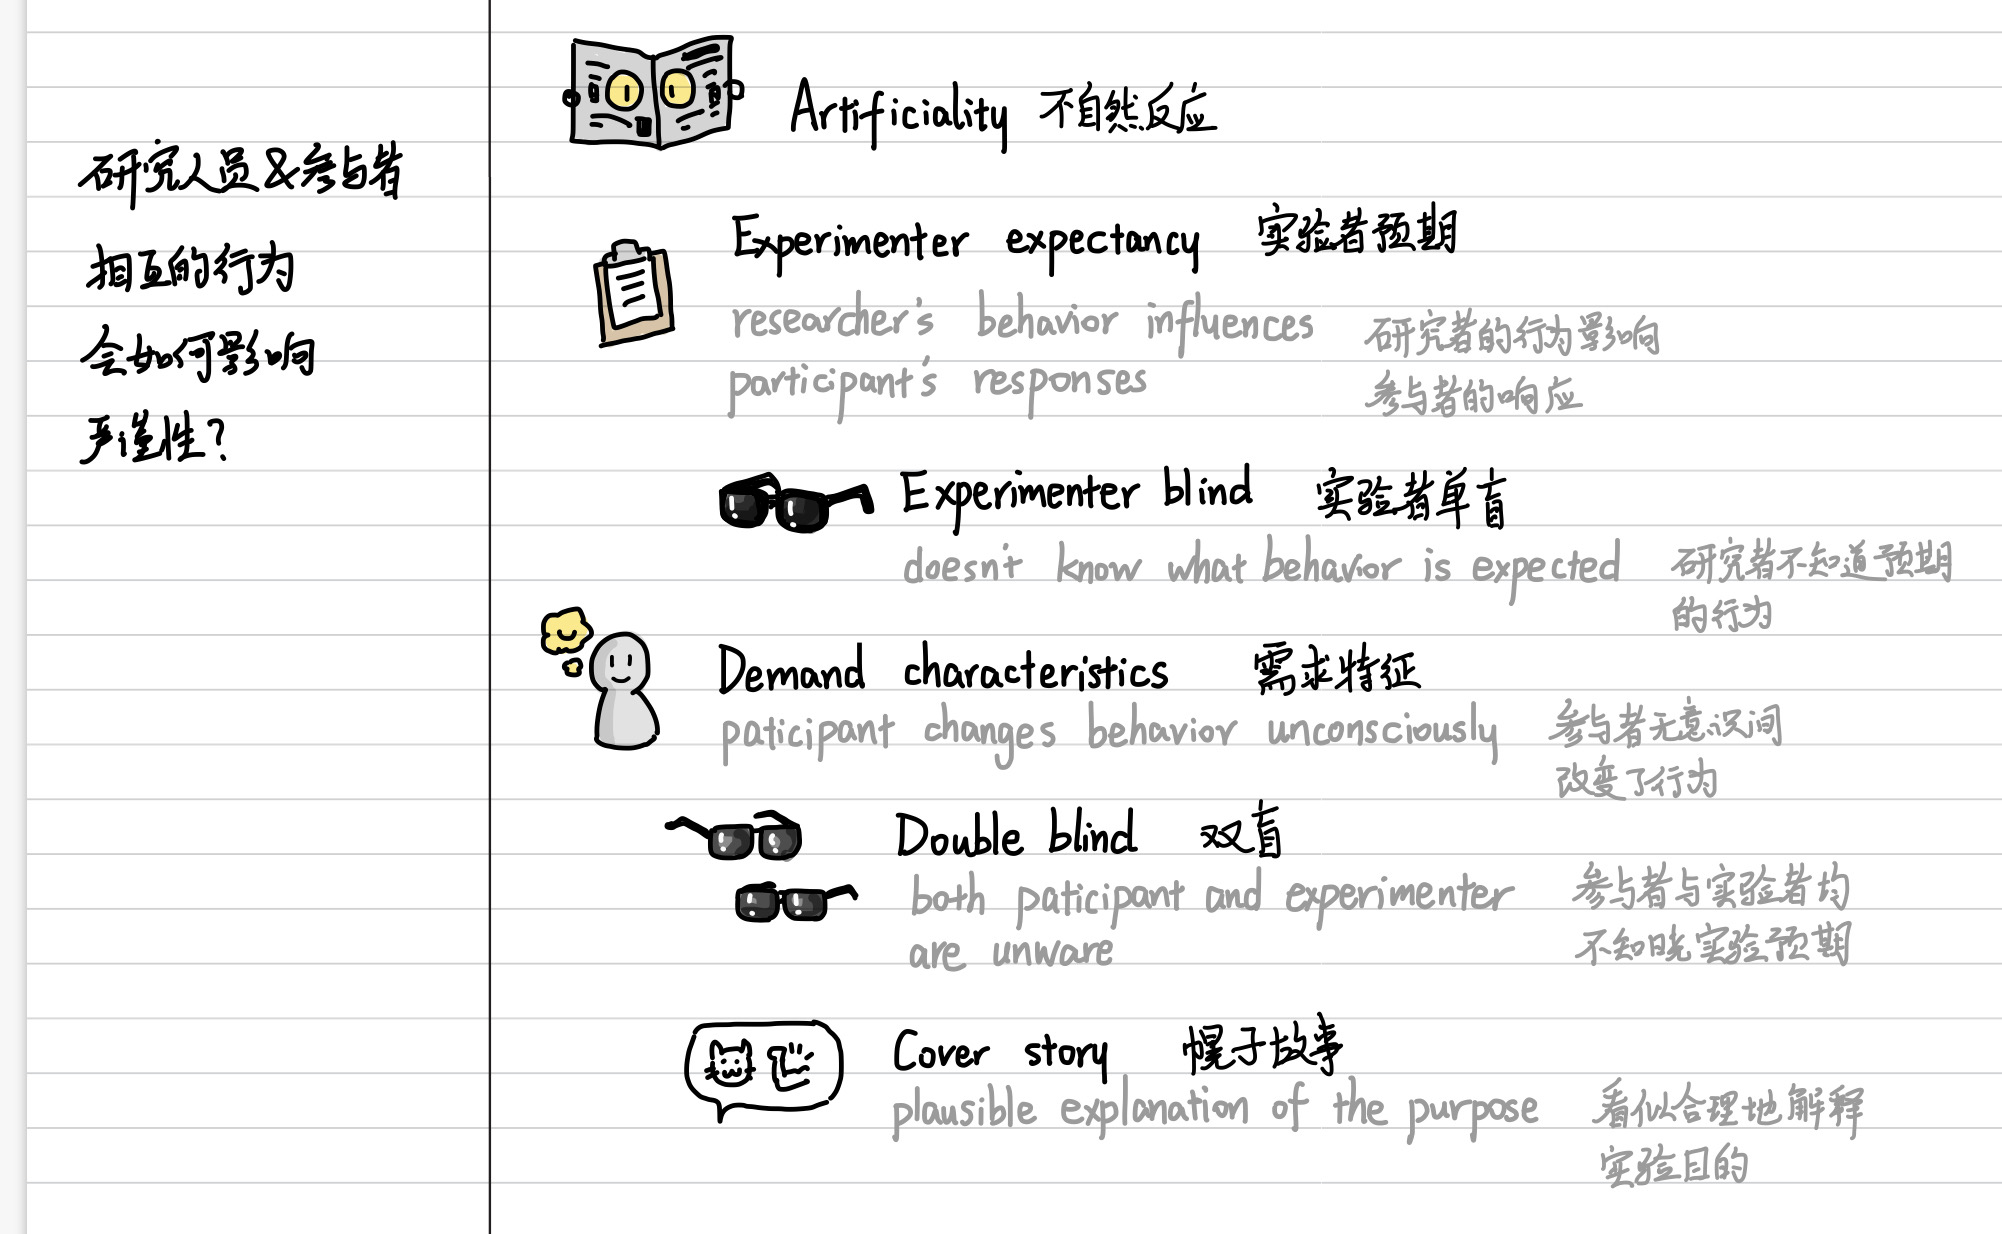 研究人员&参与者
相互的行为
会如何影响
严谨性?
Artificiality 不自然反应
Experimenter expectancy 实验者预期
researcher's behavior influences 研究者的行为影响
participant's responses 参与者的响应
Experimenter blind 实验者单盲
doesn't know what behavior is expected 研究者不知道预期
的行为
Demand characteristics 需求特征
paticipant changes behavior unconsciously 参与者无意识间
改变了行为
Double blind 双盲
both paticipant and experimenter 参与者与实验者均
are unware 不知晓实验预期
Cover story 幌子故事
plausible explanation of the purpose 看似合理地解释
实验目的